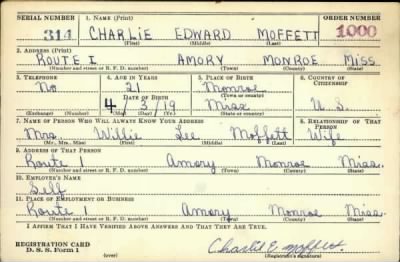 SERIAL NUMBER 1. NAME (Print) ORDER NUMBER
314 CHARLIE EDWARD MOFFETT 1000
(First) (Middle) (Last)
2. ADDRESS (Print)
ROUTE I AMORY MONROE MISS.
(Number and street or R. F. D. number) (Town) (County) (State)
3. TELEPHONE 4. AGE IN YEARS 5. PLACE OF BIRTH 6. COUNTRY OF CITIZENSHIP
No 21 Monroe
DATE OF BIRTH (Town or county)
4 3 / 19 Miss U. S.
(Exchange) (Number) (Mo.) (Day) (Yr.) (State or country)
7. NAME OF PERSON WHO WILL ALWAYS KNOW YOUR ADDRESS 8. RELATIONSHIP OF THAT PERSON
Mrs. Willie Lee Moffett Wife
(Mr., Mrs., Miss) (First) (Middle) (Last)
9. ADDRESS OF THAT PERSON
Route 1 Amory Monroe Miss.
(Number and street or R. F. D. number) (Town) (County) (State)
10. EMPLOYER'S NAME
Self
11. PLACE OF EMPLOYMENT OR BUSINESS
Route 1 Amory Monroe Miss.
(Number and street or R. F. D. number) (Town) (County) (State)
I AFFIRM THAT I HAVE VERIFIED ABOVE ANSWERS AND THAT THEY ARE TRUE.
REGISTRATION CARD
D. S. S. Form 1 (over) Charlie E Moffett
(Registrant's signature)